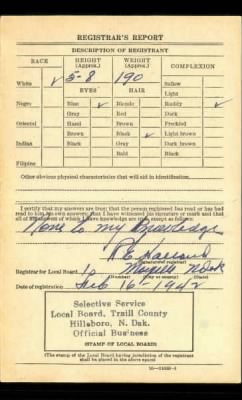 REGISTRAR'S REPORT
DESCRIPTION OF REGISTRANT
RACE HEIGHT (Approx.) WEIGHT (Approx.) COMPLEXION
White ✓ 5-8 190 Sallow
EYES HAIR Light
Negro Blue ✓ Blonde Ruddy ✓
Gray Red Dark
Oriental Hazel Brown Freckled
Brown Black ✓ Light brown
Indian Black Gray Dark brown
Bald Black
Filipino
Other obvious physical characteristics that will aid in identification
I certify that my answers are true; that the person registered has read or has had
read to him his own answers; that I have witnessed his signature or mark and that
all of his answers of which I have knowledge are true, except as follows:
None to my Knowledge
Registrar for Local Board 1 N Dak
(Number) (City or county) (State)
Date of registration Feb 16 - 1942
Selective Service
Local Board, Traill County
Hillsboro, N. Dak.
Official Business
(STAMP OF LOCAL BOARD)
(The stamp of the Local Board having jurisdiction of the registrant
shall be placed in the above space)